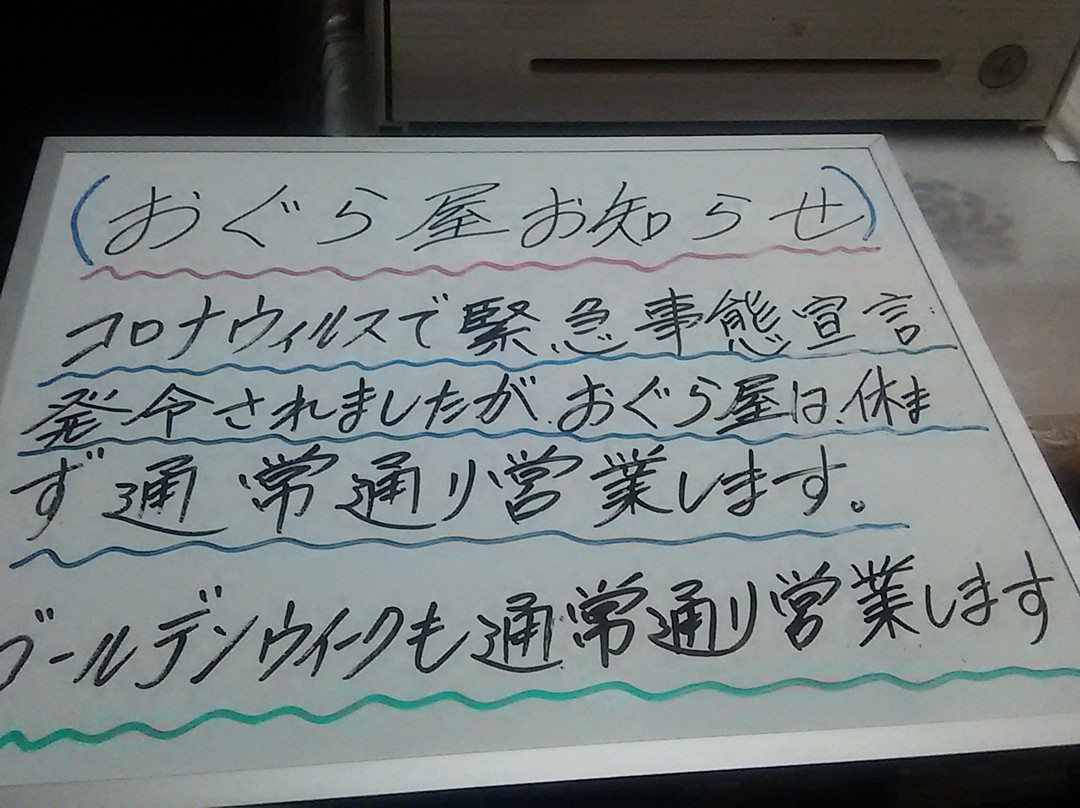 (おぐら屋お知らせ)
コロナウィルスで緊急事態宣言
発令されましたが、おぐら屋は、休ま
ず通常通り営業します。
ゴールデンウイークも通常通り営業します